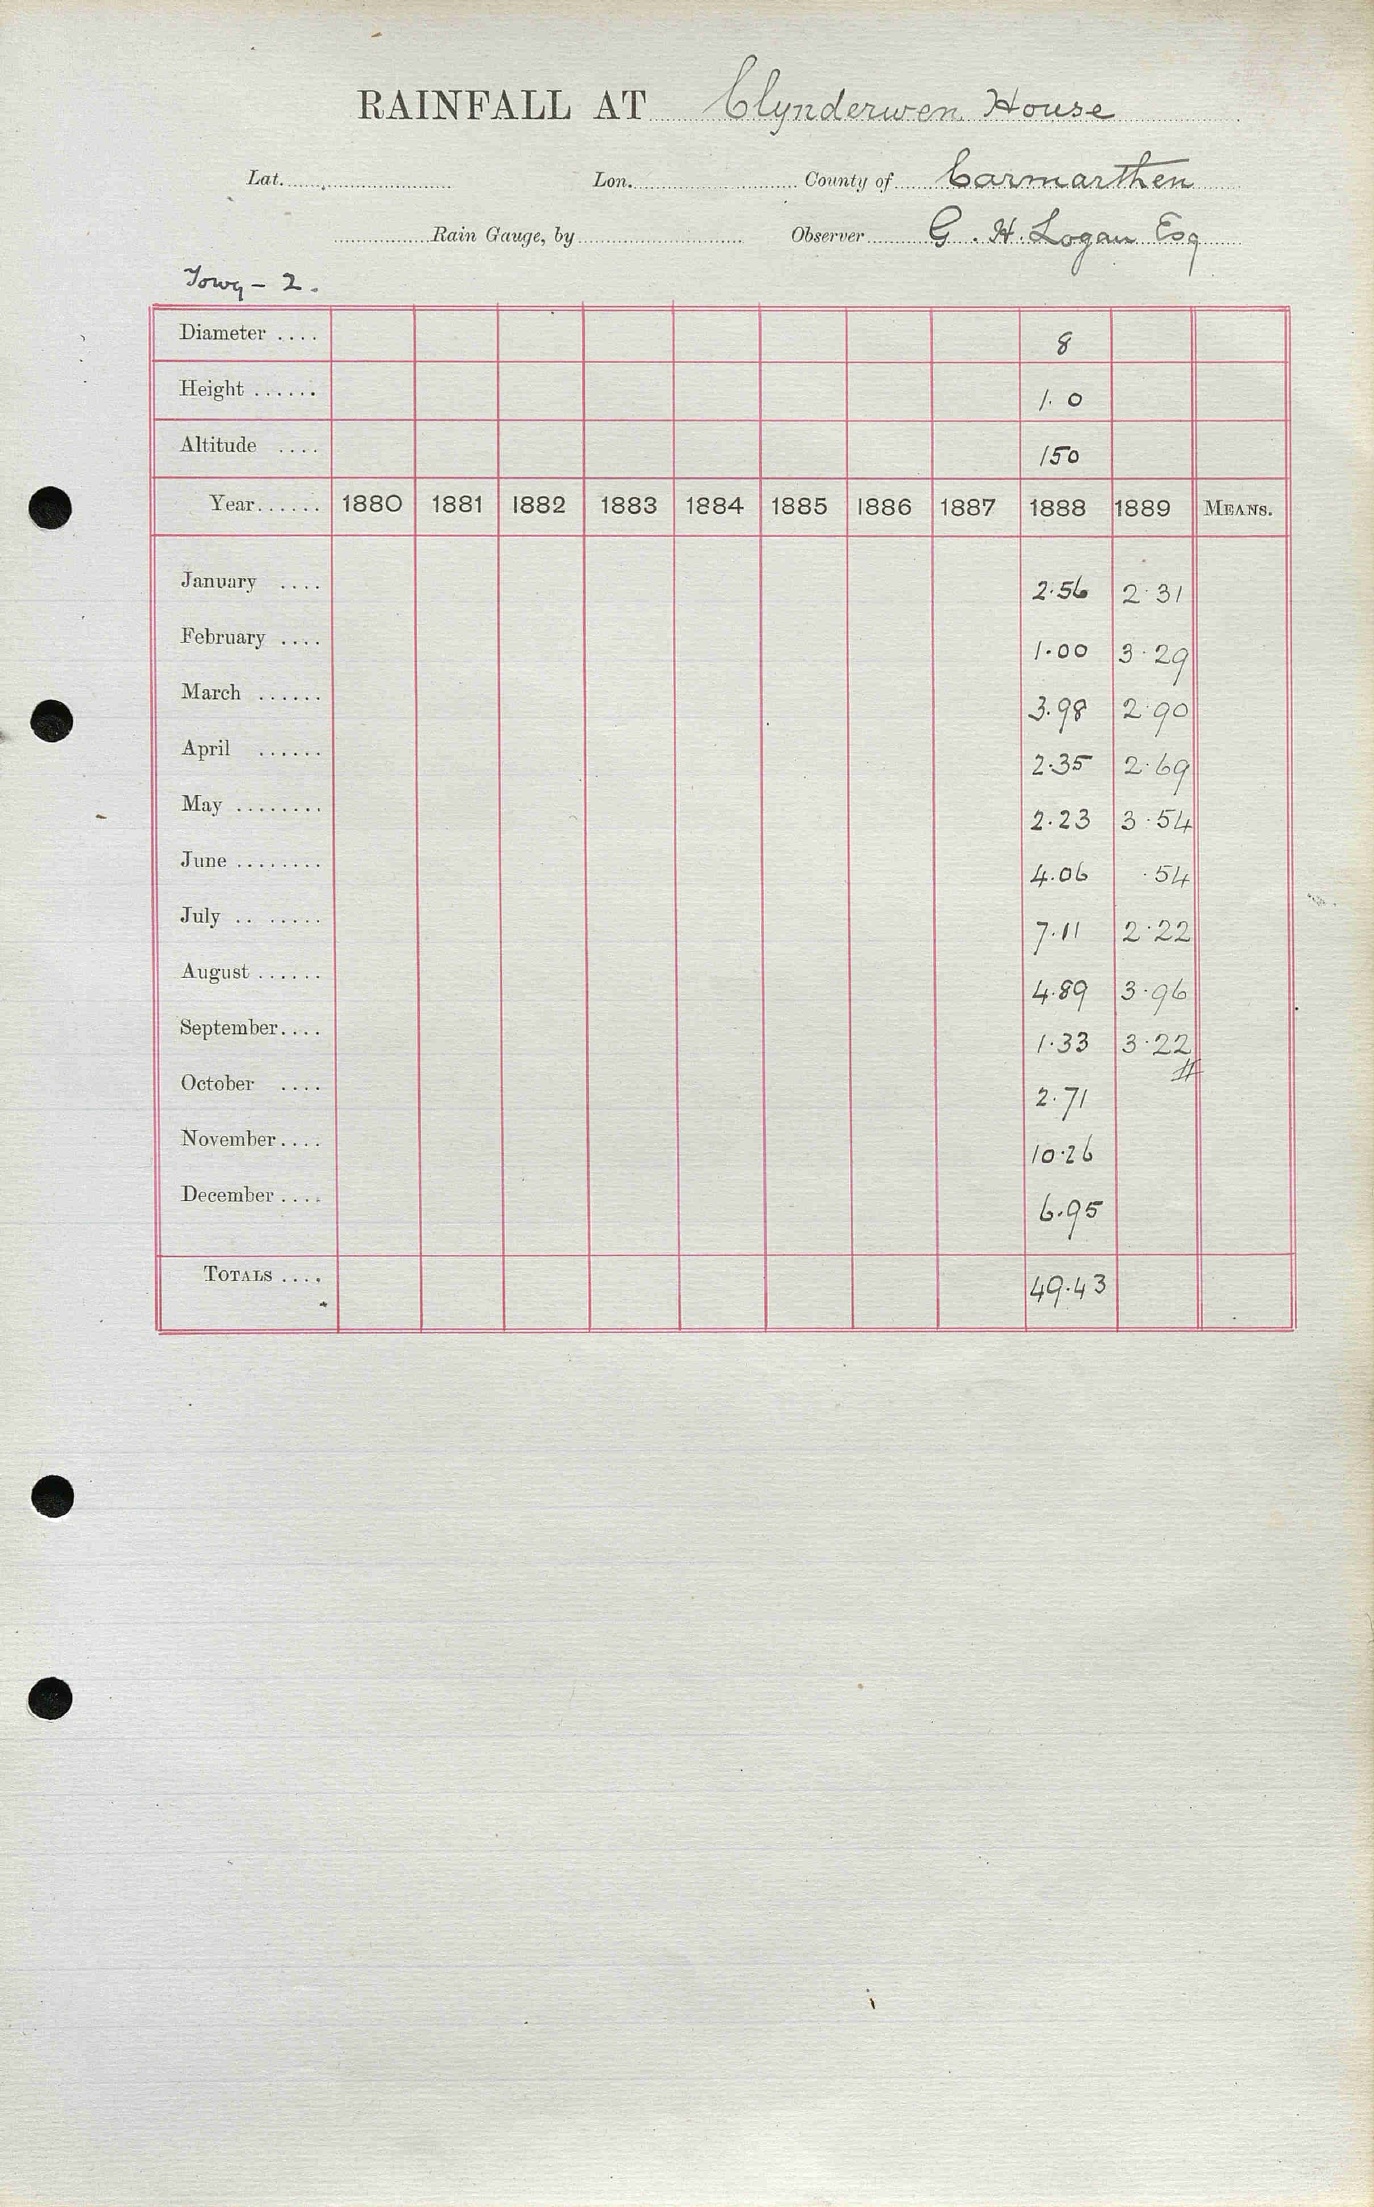 RAINFALL AT Clynderwen House
Lat. Lon. County of Carmarthen
Rain Gauge, by Observer G. H. Logan Esq
Towy - 2.
Diameter .... 8
Height ...... 1.0
Altitude .... 150
Year ...... 1880 1881 1882 1883 1884 1885 1886 1887 1888 1889 MEANS.
January .... 2.56 2.31
February .... 1.00 3.29
March ...... 3.98 2.90
April ...... 2.35 2.69
May ........ 2.23 3.54
June ........ 4.06 .54
July .. ..... 7.11 2.22
August ...... 4.89 3.96
September.... 1.33 3.22
October .... 2.71
November.... 10.26
December .... 6.95
TOTALS .... 49.43